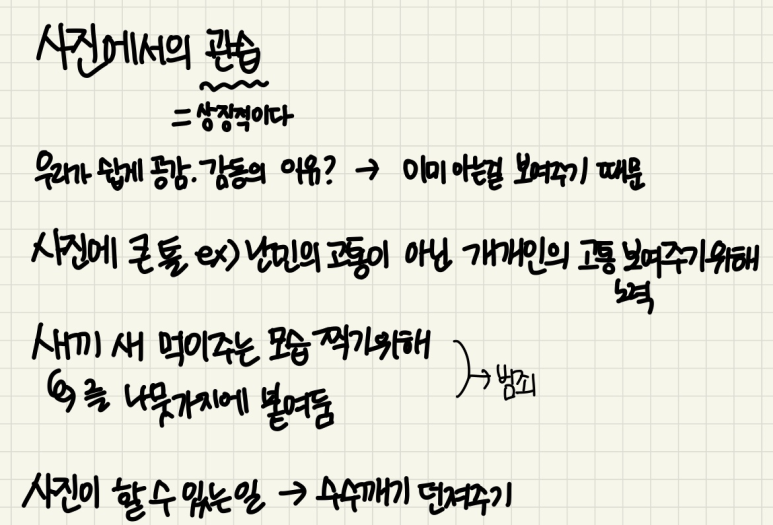 사진에서의 관습
= 상징적이다
우리가 쉽게 공감·감동의 이유? → 이미 아는걸 보여주기 때문
사진에 큰 틀 ex) 난민의 고통이 아닌 개개인의 고통 보여주기위해
노력
새끼 새 먹이주는 모습 찍기위해
를 나뭇가지에 붙여둠
→ 범죄
사진이 할 수 있는일 → 수수깨기 던져주기